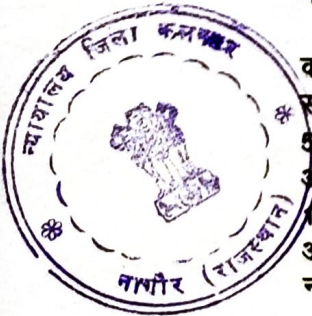 न्यायालय जिला कलक्टर
नागौर (राजस्थान)